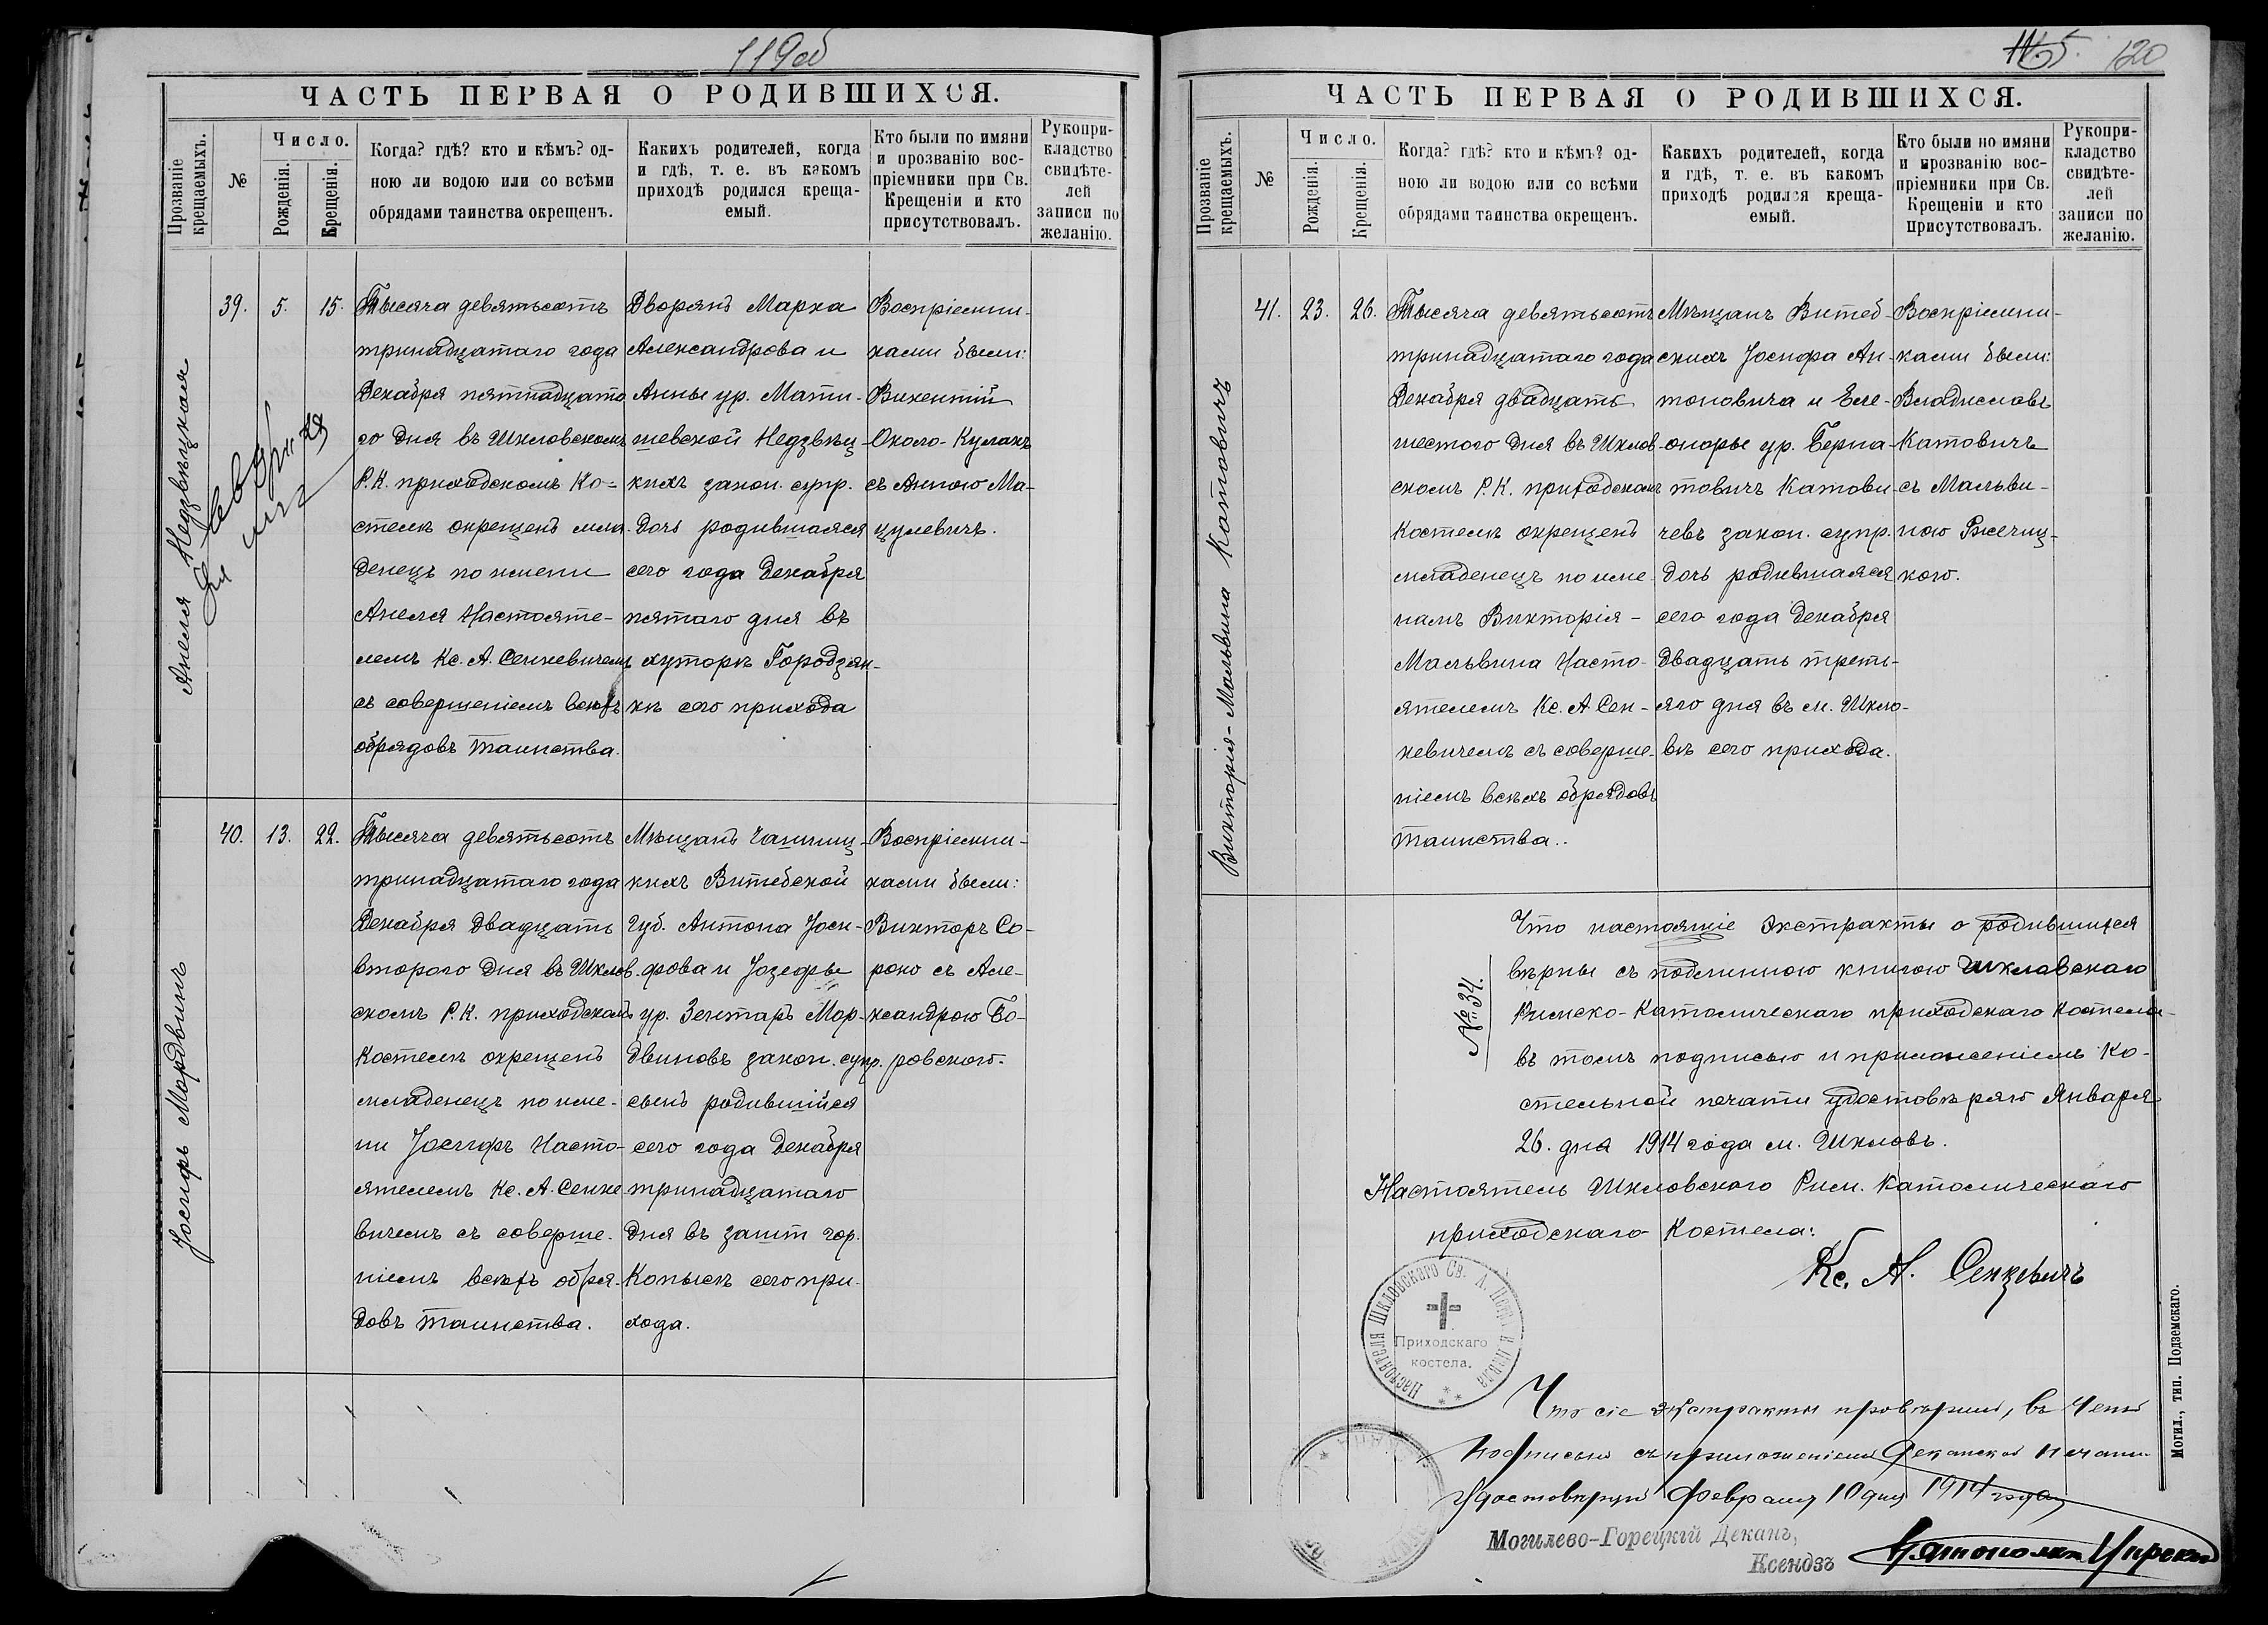 119об
ЧАСТЬ ПЕРВАЯ О РОДИВШИХСЯ.
Прозваніе крещаемыхъ.
№
Число.
Рожденія.
Крещенія.
Когда? гдѣ? кто и кѣмъ? од-
ною ли водою или со всѣми
обрядами таинства окрещенъ.
Какихъ родителей, когда
и гдѣ, т. е. въ какомъ
приходѣ родился креща-
емый.
Кто были по имяни
и прозванію вос-
пріемники при Св.
Крещеніи и кто
присутствовалъ.
Рукопри-
кладство
свидѣте-
лей
записи по
желанію.
Анеля Недзвѣцкая
39.
5.
15.
Тысяча девятьсотъ
тринадцатаго года
Декабря пятнадцата
го дня въ Шкловскомъ
Р.К. приходскомъ Ко-
стелѣ окрещенъ мла-
денецъ по имени
Анеля Настояте-
лемъ Кс. А. Сенкевичемъ
съ совершеніемъ всѣхъ
обрядовъ таинства.
Дворянъ Марка
Александрова и
Анны ур. Мати-
шевской Недзвѣц-
кихъ закон. супр.
дочь родившаяся
сего года Декабря
пятаго дня въ
хуторѣ Городзян-
кѣ сего прихода
Воспріемни-
ками были:
Викентій
Около-Кулакъ
съ Анною Ма-
цулевичъ.
Іосифъ Мордвинъ
40.
13.
22.
Тысяча девятьсотъ
тринадцатаго года
Декабря двадцать
второго дня въ Шклов-
скомъ Р.К. приходскомъ
Костелѣ окрещенъ
младенецъ по име-
ни Іосифъ Насто-
ятелемъ Кс. А. Сенке
вичемъ съ соверше-
ніемъ всѣхъ обря-
довъ таинства.
Мѣщанъ Чашниц-
кихъ Витебской
Губ. Антона Іоси-
фова и Іозефы
ур. Зентаръ Мор-
двиновъ закон. супр.
сынъ родившійся
сего года Декабря
тринадцатаго
дня въ зашт гор.
Копысѣ сего при-
хода.
Воспріемни-
ками были:
Викторъ Со-
роко съ Але-
ксандрою Бо-
ровского.
1165. 120
ЧАСТЬ ПЕРВАЯ О РОДИВШИХСЯ.
Прозваніе крещаемыхъ.
№
Число.
Рожденія.
Крещенія.
Когда? гдѣ? кто и кѣмъ? од-
ною ли водою или со всѣми
обрядами таинства окрещенъ.
Какихъ родителей, когда
и гдѣ, т. е. въ какомъ
приходѣ родился креща-
емый.
Кто были по имяни
и прозванію вос-
пріемники при Св.
Крещеніи и кто
присутствовалъ.
Рукопри-
кладство
свидѣте-
лей
записи по
желанію.
Викторія-Мальвина Катовичъ
41.
23.
26.
Тысяча девятьсотъ
тринадцатаго года
Декабря двадцать
шестого дня въ Шклов-
скомъ Р.К. приходскомъ
Костелѣ окрещенъ
младенецъ по име-
намъ Викторія-
Мальвина Насто-
ятелемъ Кс. А. Сен-
кевичемъ съ соверше-
ніемъ всѣхъ обрядовъ
таинства..
Мѣщанъ Витеб-
скихъ Іосифа Ан-
тоновича и Еле-
оноры ур. Берна-
товичъ Катови-
чевъ закон. супр.
дочь родившаяся
сего года Декабря
двадцать треть-
яго дня въ м. Шкло-
вѣ сего прихода.
Воспріемни-
ками были:
Владиславъ
Катовичъ
съ Мальви-
ною Ржечиц-
кою.
№ 34.
Что настоящіе экстракты о родившихся
вѣрны съ подлинною книгою Шкловскаго
Римско-Католическаго приходскаго Костела-
въ томъ подписью и приложеніемъ Ко-
стельной печати удостовѣряю Января
26. дня 1914 года м. Шкловъ.
Настоятель Шкловского Рим. Католическаго
приходскаго Костела:
Кс. А. Сенкевичъ
Настоятеля Шкловскаго Св. А. Петра и Павла
Приходскаго
костела.
Что сіе экстракты провѣрилъ, въ чемъ
подписью съ приложеніемъ Деканской печати
удостовѣряю Февраля 10 дня 1914 года
Могилево-Горецкій Деканъ,
Ксендзъ
Могил., тип. Подземскаго.